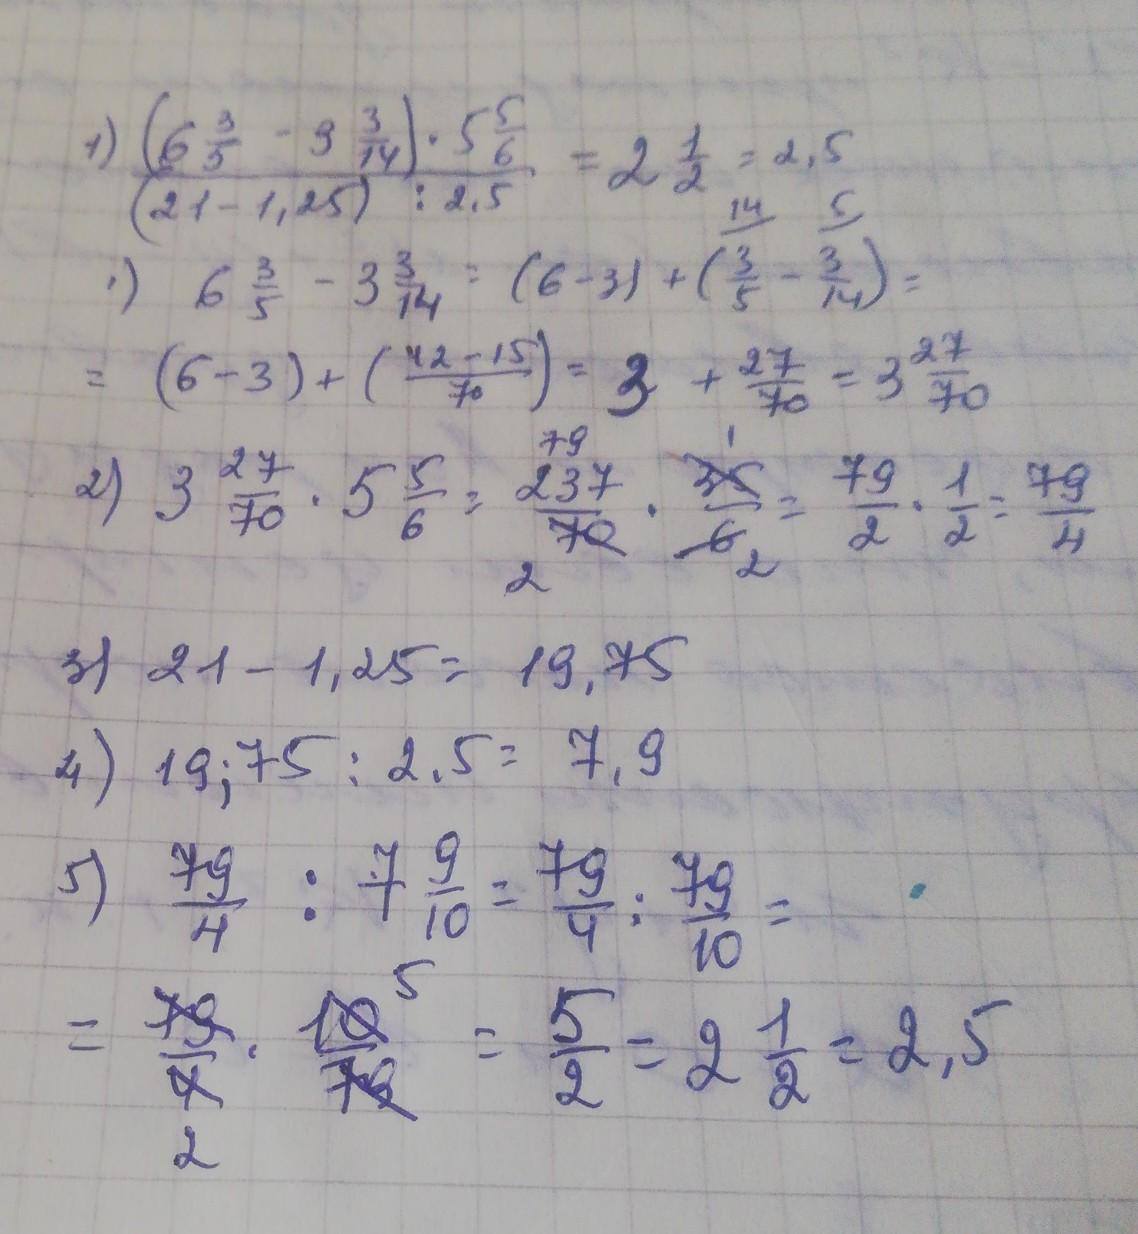 1) (6 3/5 - 3 3/14) · 5 5/6 / (21 - 1,25) : 2.5 = 2 1/2 = 2,5
1) 6 3/5 - 3 3/14 = (6-3) + (3/5 - 3/14) = 14 5
= (6-3) + (42-15/70) = 3 + 27/70 = 3 27/70
2) 3 27/70 · 5 5/6 = 237/70 · 35/6 = 79/2 · 1/2 = 79/4 79 1 2 2
3) 21 - 1,25 = 19,75
4) 19,75 : 2.5 = 7,9
5) 79/4 : 7 9/10 = 79/4 : 79/10 =
= 79/4 · 10/79 = 5/2 = 2 1/2 = 2,5 5 2